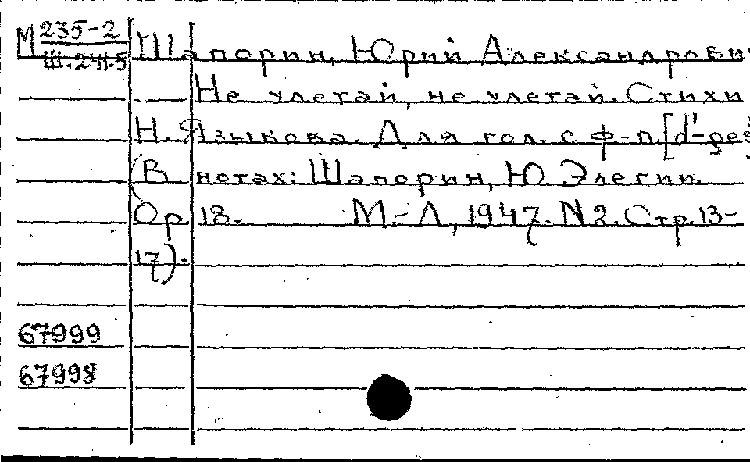 М 235-2
Ш.241.5
Шапорин, Юрий Александрови
Не улетай, не улетай. Стихи
Н. Языкова. Для гол. с ф-п. [d'-ges
(В нотах: Шапорин, Ю. Элегии.
Ор. 18. М.-Л., 1947. N 2. Стр. 13-
17).
67999
67998